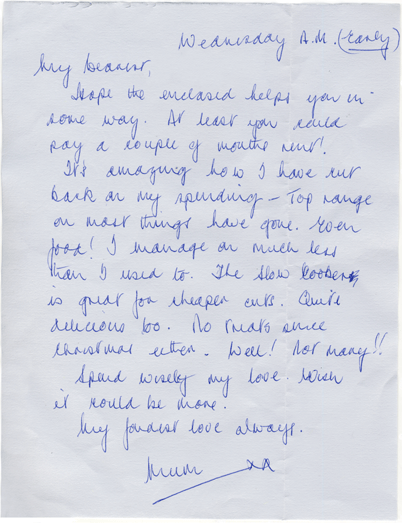 Wednesday A.M. (Early)
My Dearest,
Hope the enclosed helps you in
some way. At least you could
pay a couple of months rent!
It's amazing how I have cut
back on my spending – Top range
on most things have gone. Even
food! I manage on much less
than I used to. The slow cooker
is great for cheaper cuts. Quite
delicious too. No treats since
Christmas either. Well! Not many!!
Spend wisely my love. Wish
it could be more.
My fondest love always.
Mum xx